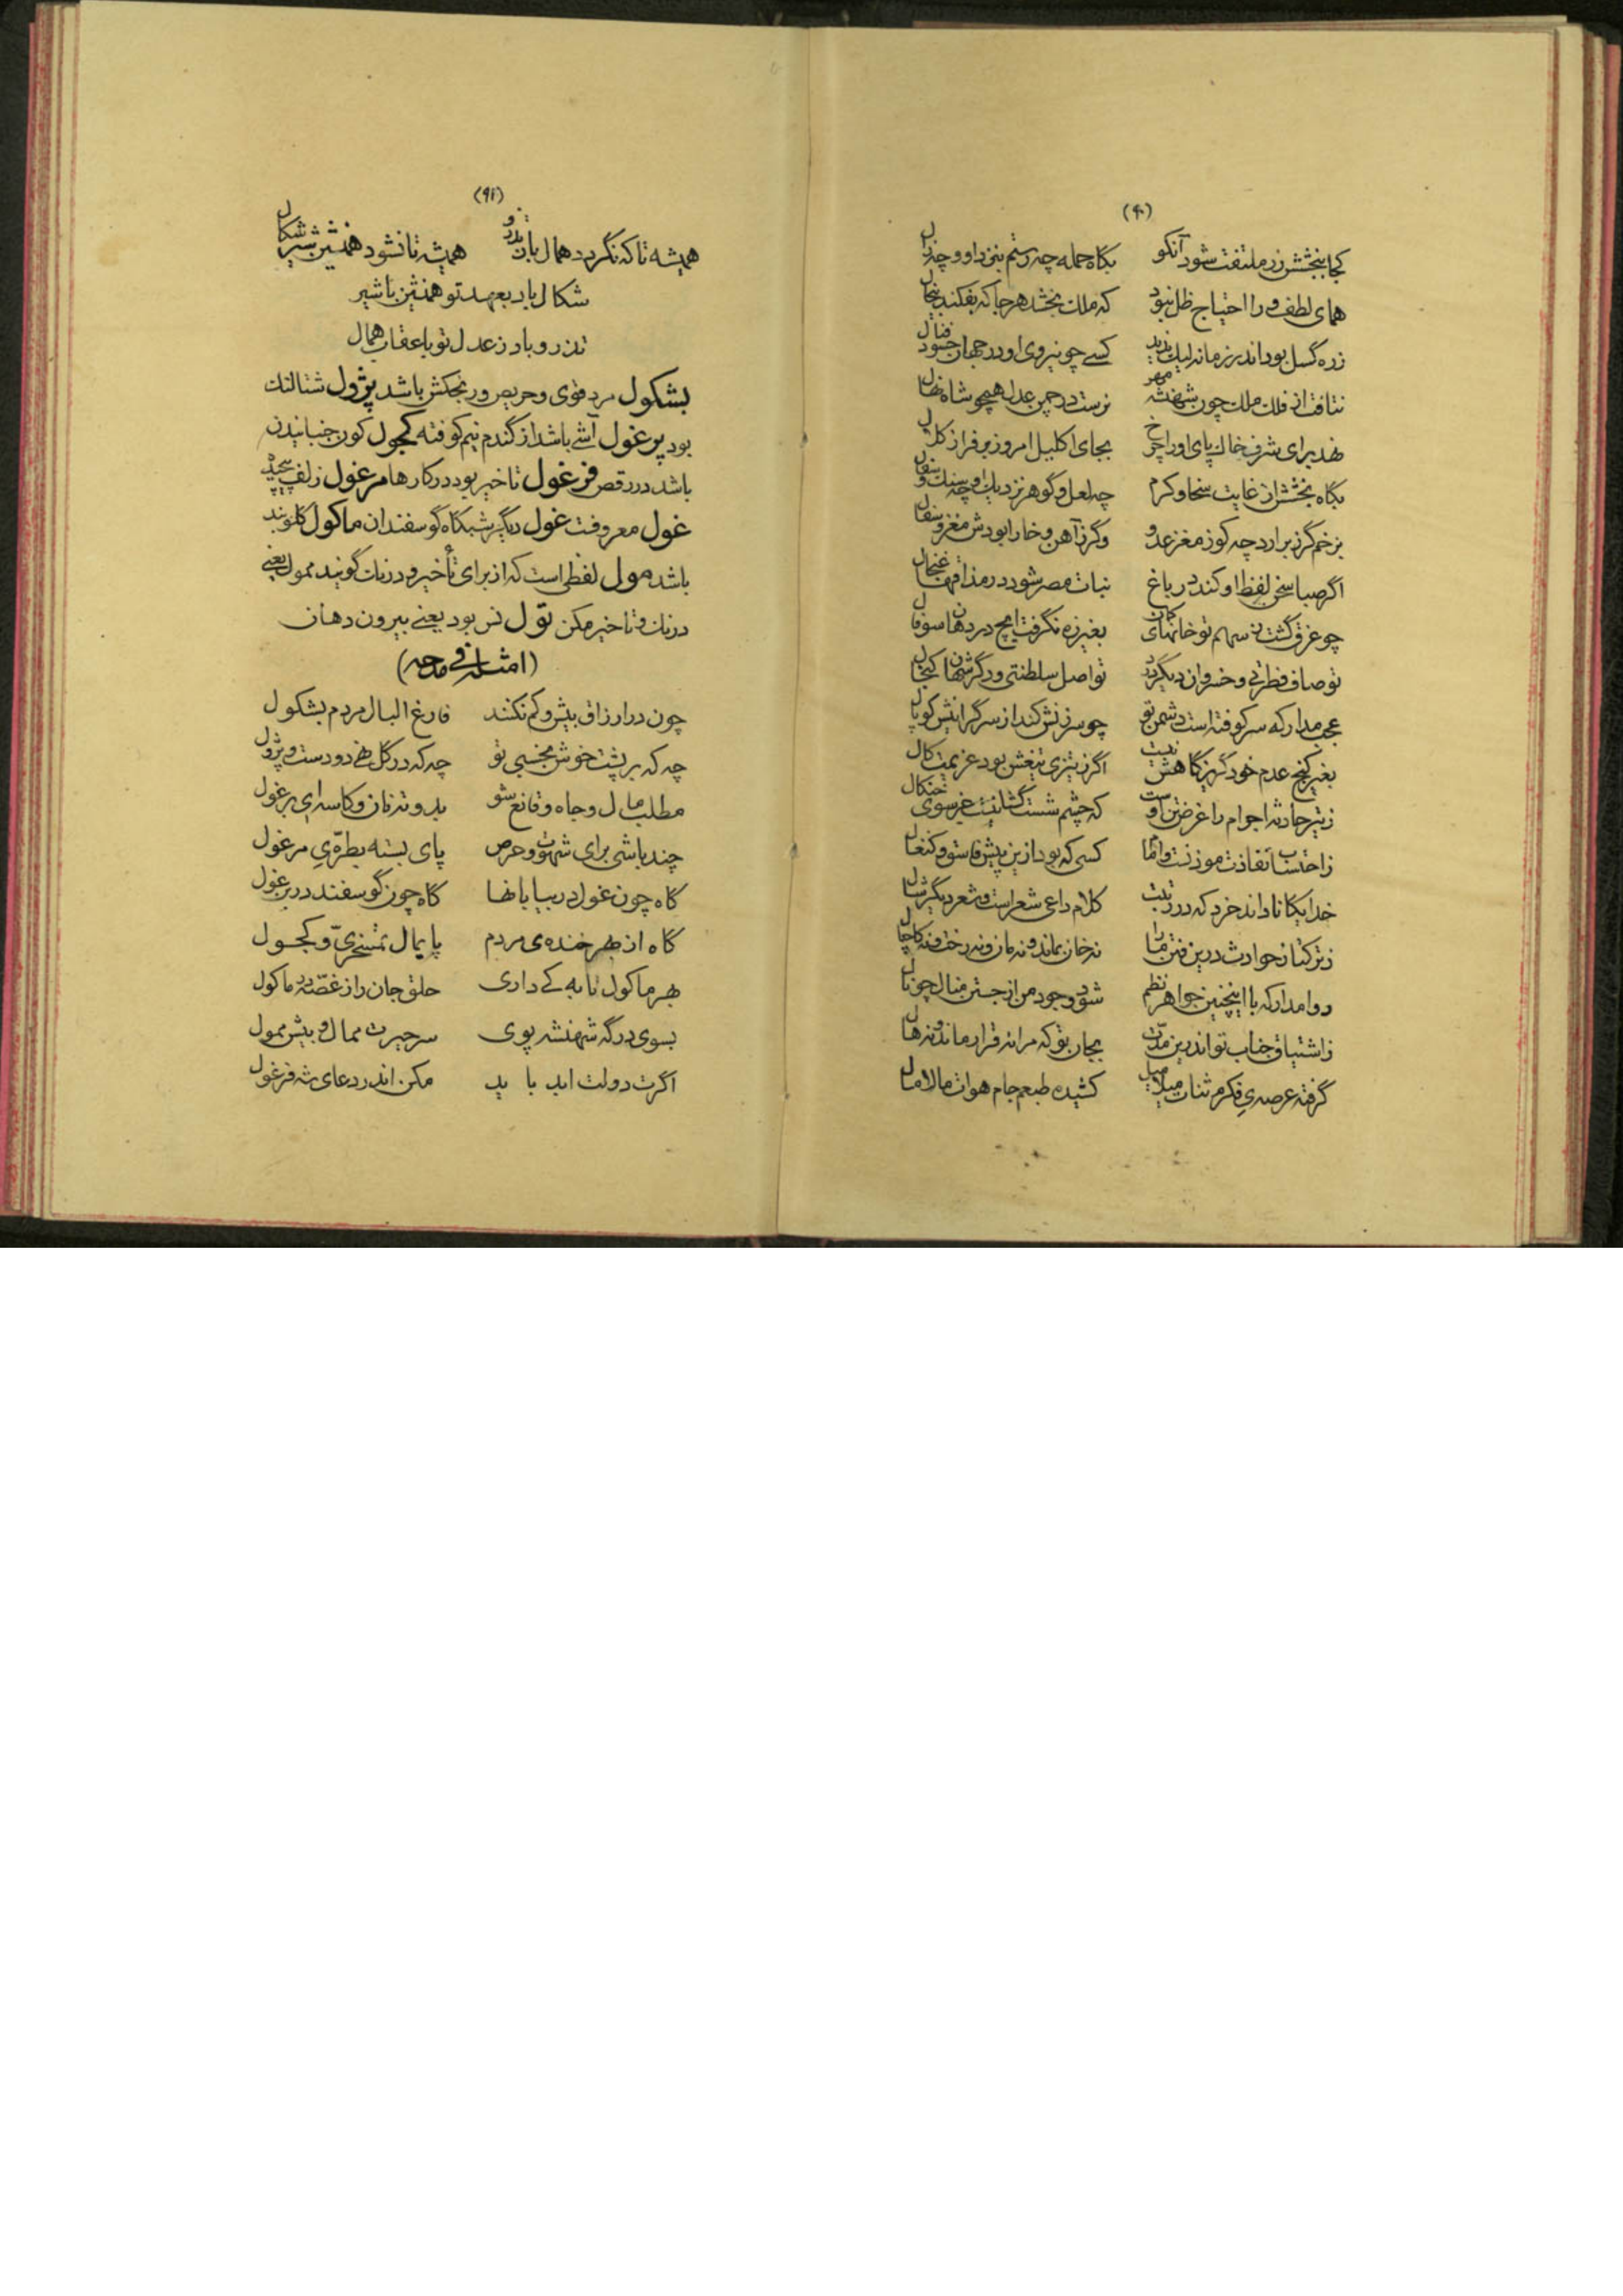 (۹۰)
کجا ببخشش زر ملتفت شود آنکو بگاه حمله چه رستم بنزد او و چه زال
همای لطف ورا احتیاج ظل نبود که ملک بخشد هر جا که بفکند پیخال
زره گسل بود اندر زمانه لیک ندید کسی چو نیروی او در جهان خشود فتال
نتافت از فلک ملک چون شهنشه مهر نرست در چمن عدل همچو شاه نهال
نهد برای شرف خاک پای او را چرخ بجای اکلیل امروز بر فراز کلال
بگاه بخشش از غایت سخا و کرم چه لعل و گوهر نزدیک او چه سنک و سفال
بزخم گرز برارد چه کوز مغز عدو وگر ز آهن و خارا بودش مغز و سفال
اگر صبا سخن لفظ او کند در باغ نبات مصر شود در مذاقها غنجال
چو غرق گشت ز سهم تو خانهای کمان بغیر زه نگرفت ایچ در دهان سوفال
تو صاف فطرتی و خسروان دیگر درد تو اصل سلطنتی و دگر شهان کنجال
عجب مدار که سر کوفته است دشمن تو چو سرزنش کند از سر گرانیش کوپال
بغیر کنج عدم خود گریزگاهش نیست اگر ز تیزی تیغش بود عزیمت کال
ز تیر حادثه اجرام را غرض تن اوست که چشم شست گشا نیست غیر سوی خنکال
ز احتساب نفاذت موذنت و امام کسی که بود ازین پیش فاسق و کنغال
خدایگانا داند خرد که در رتبت کلام داعی شعر است و شعر دیگر شال
ز ترکتاز حوادث درین فتن ما را نه خان بماند و نه مان و نه رخت و نه کاچال
روا مدار که با اینچنین جواهر نظم شود وجود من از جستن منال چو نال
ز اشتیاق جناب تو اندرین مدت بجان تو که مرا نه قرار ماند و نه هال
گرفته عرصه‌ی فکرم ثنات میلامیل کشیده طبعم جام هوات مالامال
(۹۱)
همیشه تا که نگردد همال باز تذرو همیشه تا نشود همنشین شیر شکال
شکال باد بعهد تو همنشین با شیر
تذرو باد ز عدل تو با عقاب همال
بشکول مرد قوی و حریص و رنجکش باشد پژول شتالنک
بود پرغول آشی باشد از گندم نیم کوفته کچول کون جنبانیدن
باشد در رقص فرغول تاخیر بود در کارها مرغول زلف پیچیده
غول معروفست غول دیگر شبگاه گوسفندان ماکول گلوبند
باشد مول لفظی است که از برای تأخیر و درنک گویند ممول یعنی
درنک و تاخیر مکن تول لس بود یعنی بیرون دهان
(امثله فی مدحه)
چون در ارزاق بیش و کم نکنند فارغ البال مردم بشکول
چه که بر پشت خوش بخسبی تو چه که در گل نهی دو دست و پژول
مطلب مال و جاه و قانع شو بدو ته نان و کاسه‌ای پرغول
چند باشی برای شهوت و حرص پای بسته بطره‌ی مرغول
گاه چون غول در بیابانها گاه چون گوسفند در بر غول
گاه از بهر خنده‌ی مردم پایمال تمسخری و کچول
بهر ماکول تا به کی داری حلق جان را ز غصه در ماکول
بسوی درگه شهنشه پوی سر حیرت ممال و بیش ممول
اگرت دولت ابد باید مکن اندر دعای شه فرغول